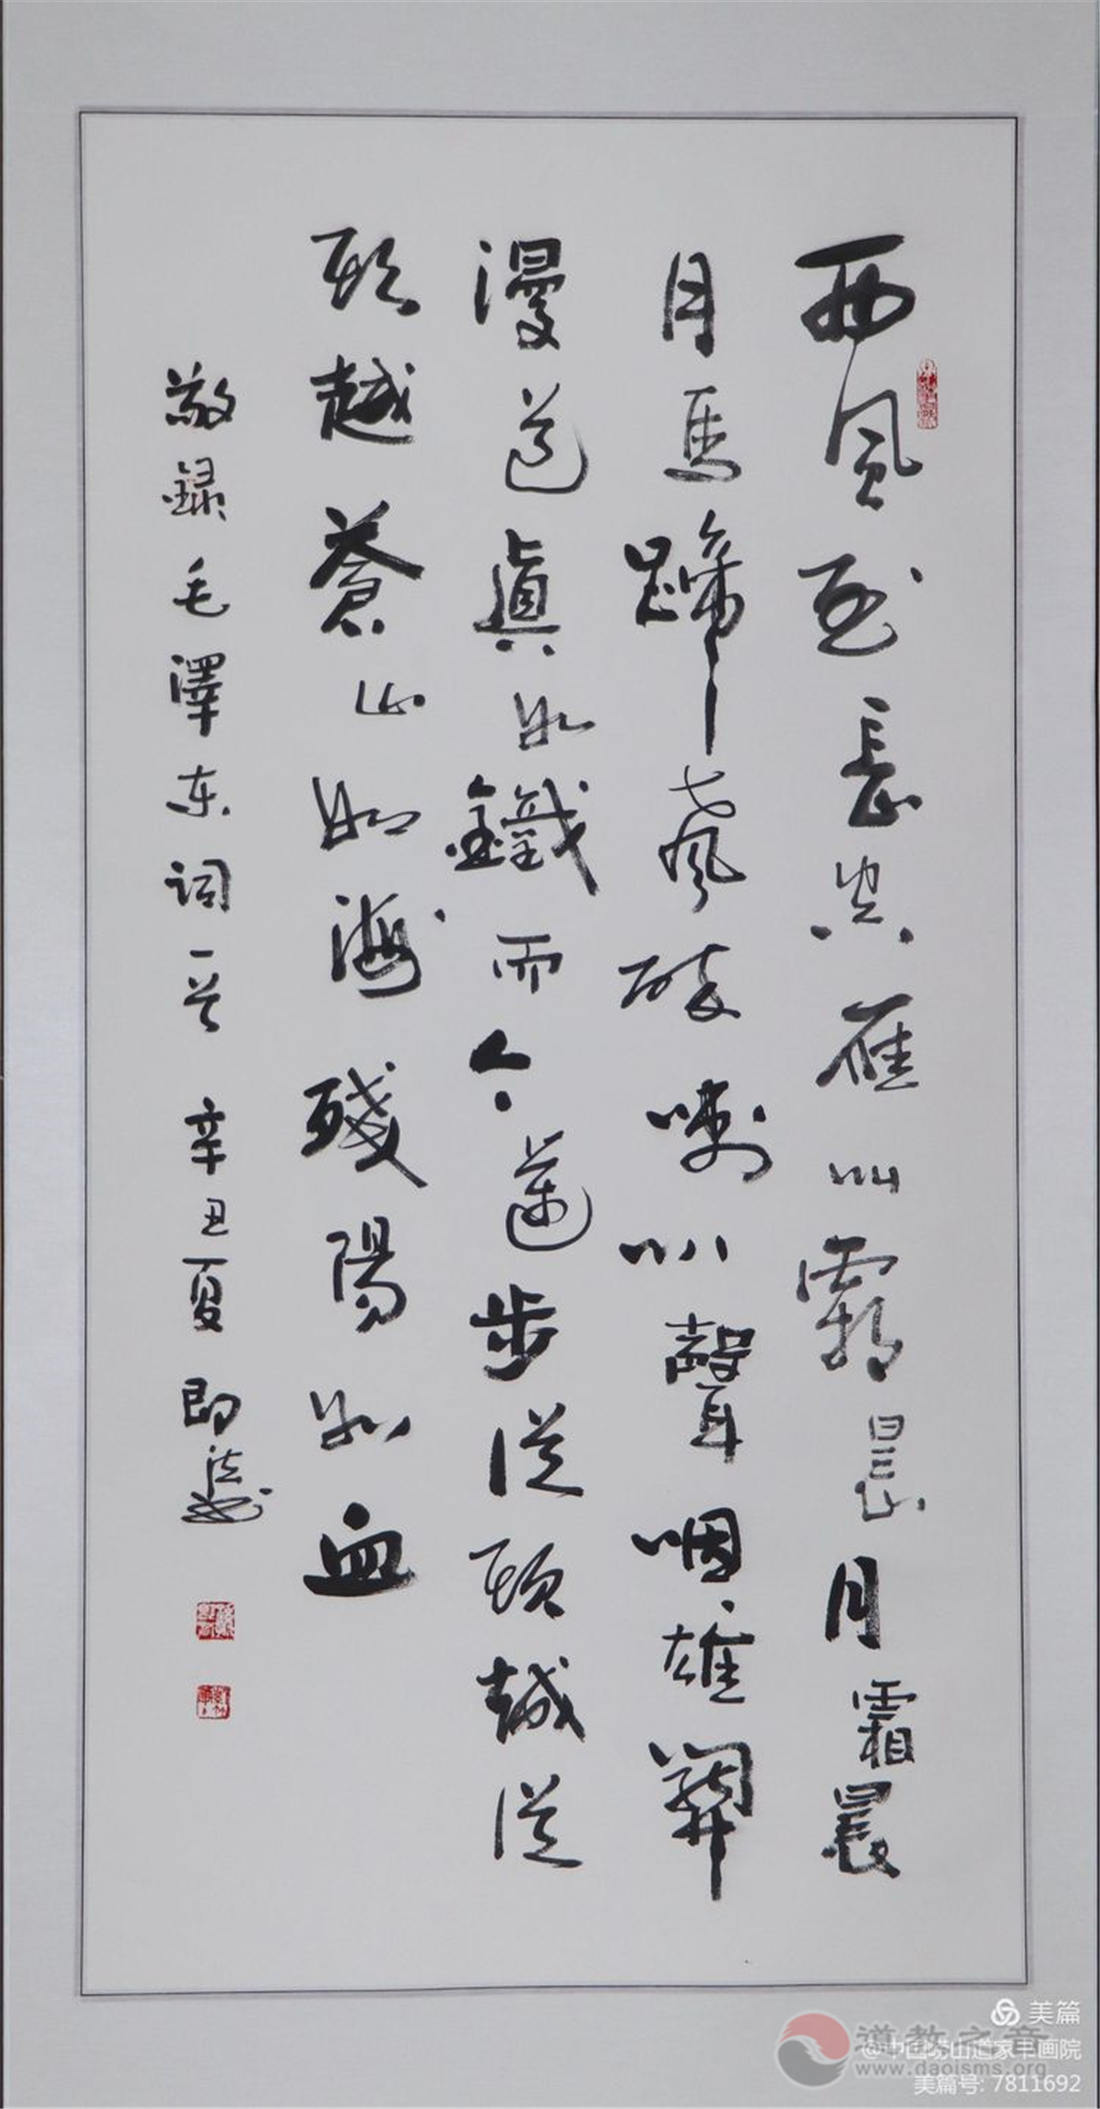 西風烈長空雁叫霜晨月霜晨
月馬蹄聲碎喇叭聲咽雄關
漫道真如鐵而今邁步從頭越從
頭越蒼山如海殘陽如血
敬録毛澤東詞一首 辛丑夏
美篇
@中国崂山道家书画院
道教之音
www.daoisms.org
美篇号: 7811692